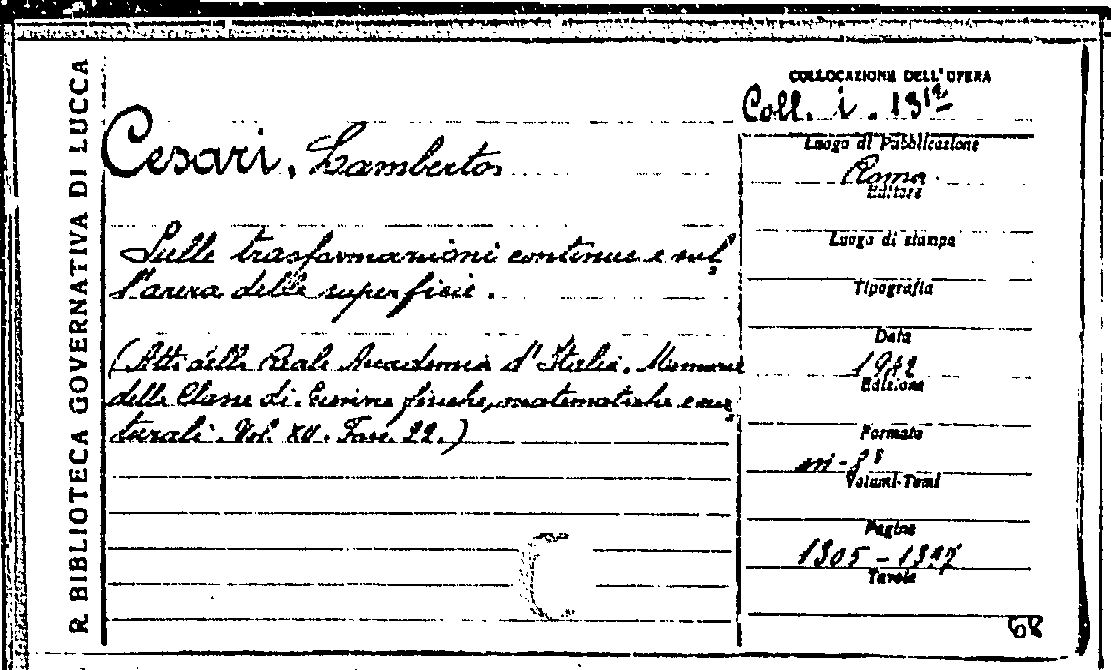 R. BIBLIOTECA GOVERNATIVA DI LUCCA
Cesari, Lamberto
Sulle trasformazioni continue e sul
l'area delle superficie.
(Atti della Reale Accademia d'Italia. Memorie
della Classe di Scienze fisiche, matematiche e na
turali. Vol. XII. Fasc. 22.)
COLLOCAZIONE DELL'OPERA
Coll. i. 13
Luogo di Pubblicazione
Roma
Editore
Luogo di stampa
Tipografia
Data
1942
Edizione
Formato
in-8°
Volumi-Tomi
Pagine
1305-1397
Tavole
68